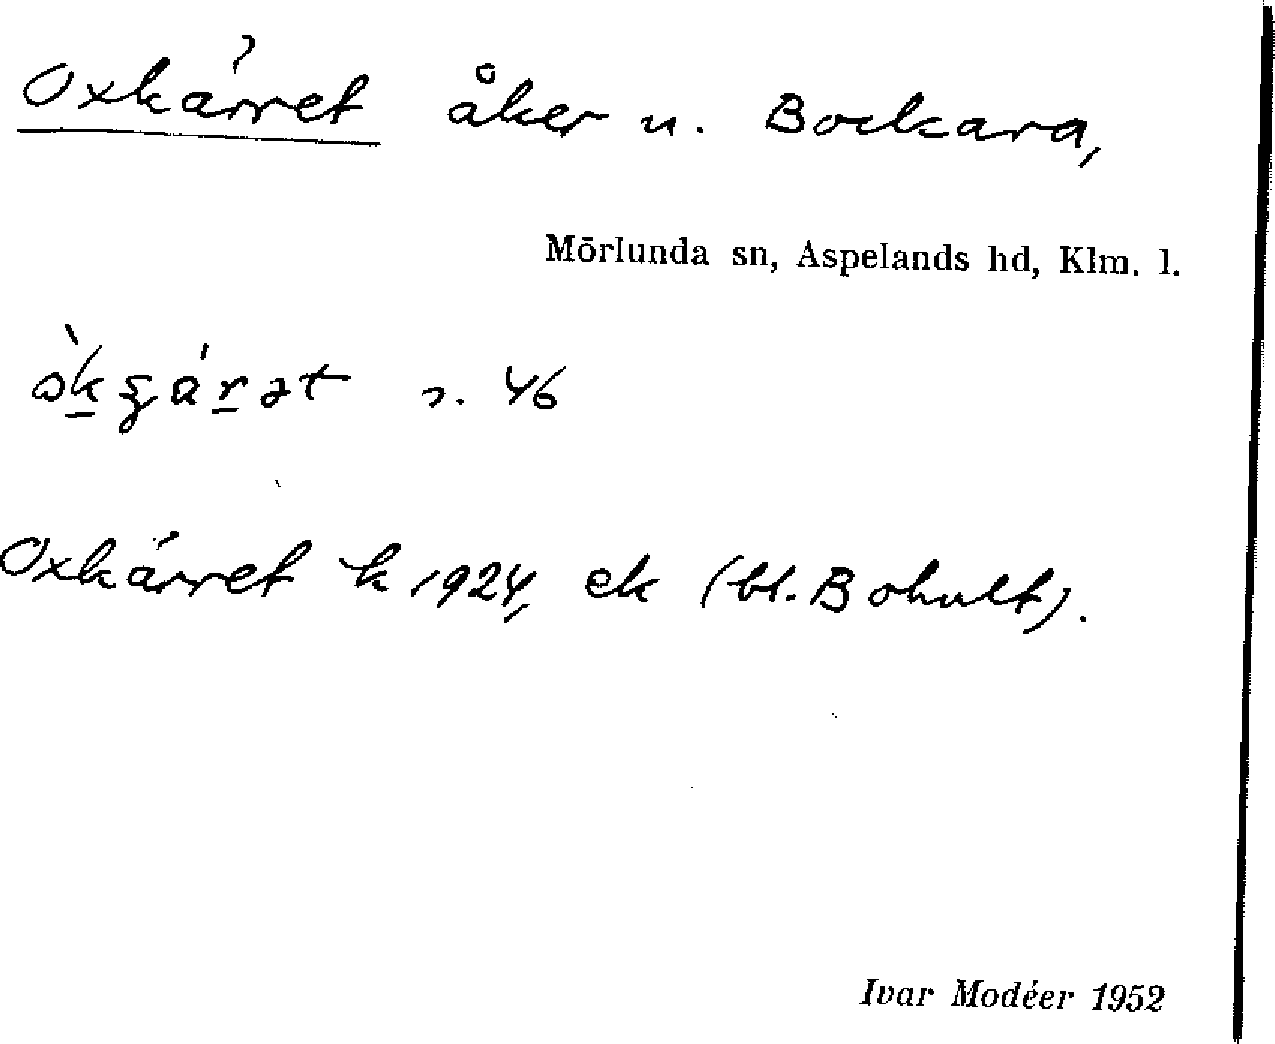 Oxkärret åker u. Bockara,
Mörlunda sn, Aspelands hd, Klm. l.
s. 46
Oxkärret k 1924, ek (bl. Bohult).
Ivar Modéer 1952